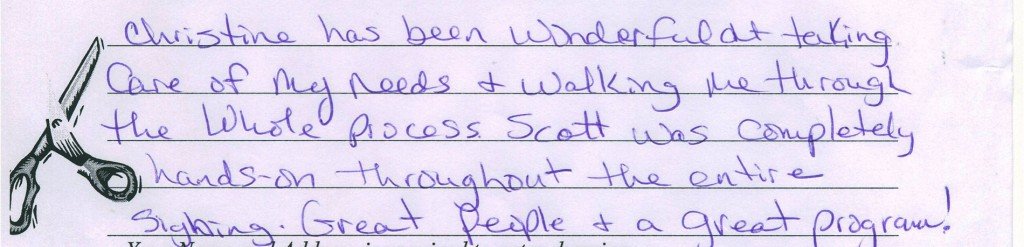 Christine has been wonderful at taking
Care of my needs & walking me through
the whole process. Scott was completely
hands-on throughout the entire
signing. Great People & a great program!